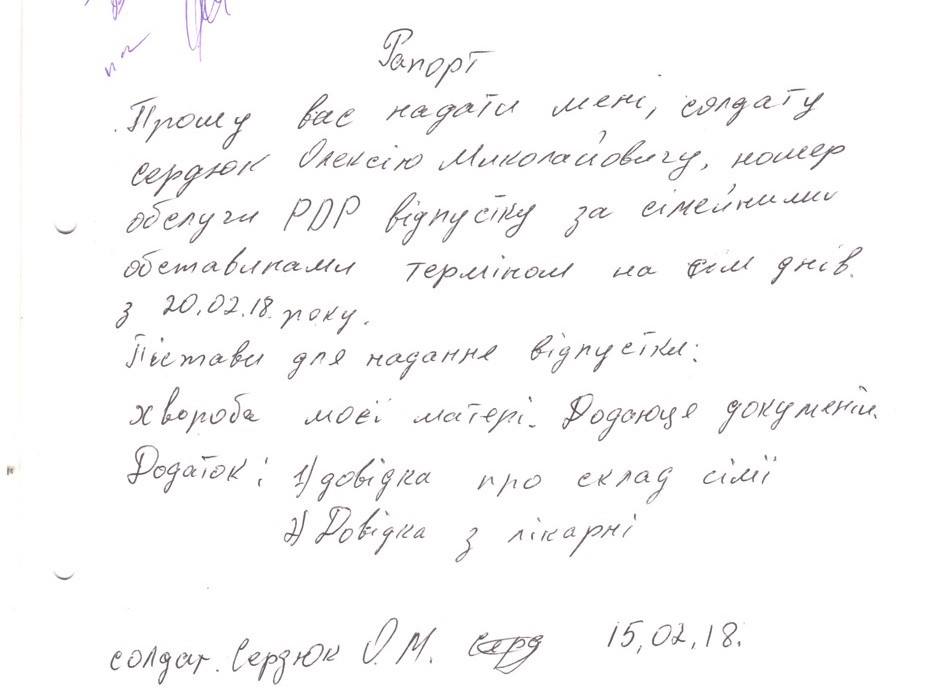 Рапорт
Прошу вас надати мені, солдату
Сердюк Олексію Миколайовичу, номер
обслуги РДР відпустку за сімейними
обставинами терміном на сім днів.
з 20.02.18. року.
Пістави для надання відпустки:
хвороба моєї матері. Додаюце документи.
Додаток: 1) довідка про склад сімії
2) Довідка з лікарні
солдат. Сердюк О.М. 15,02,18.